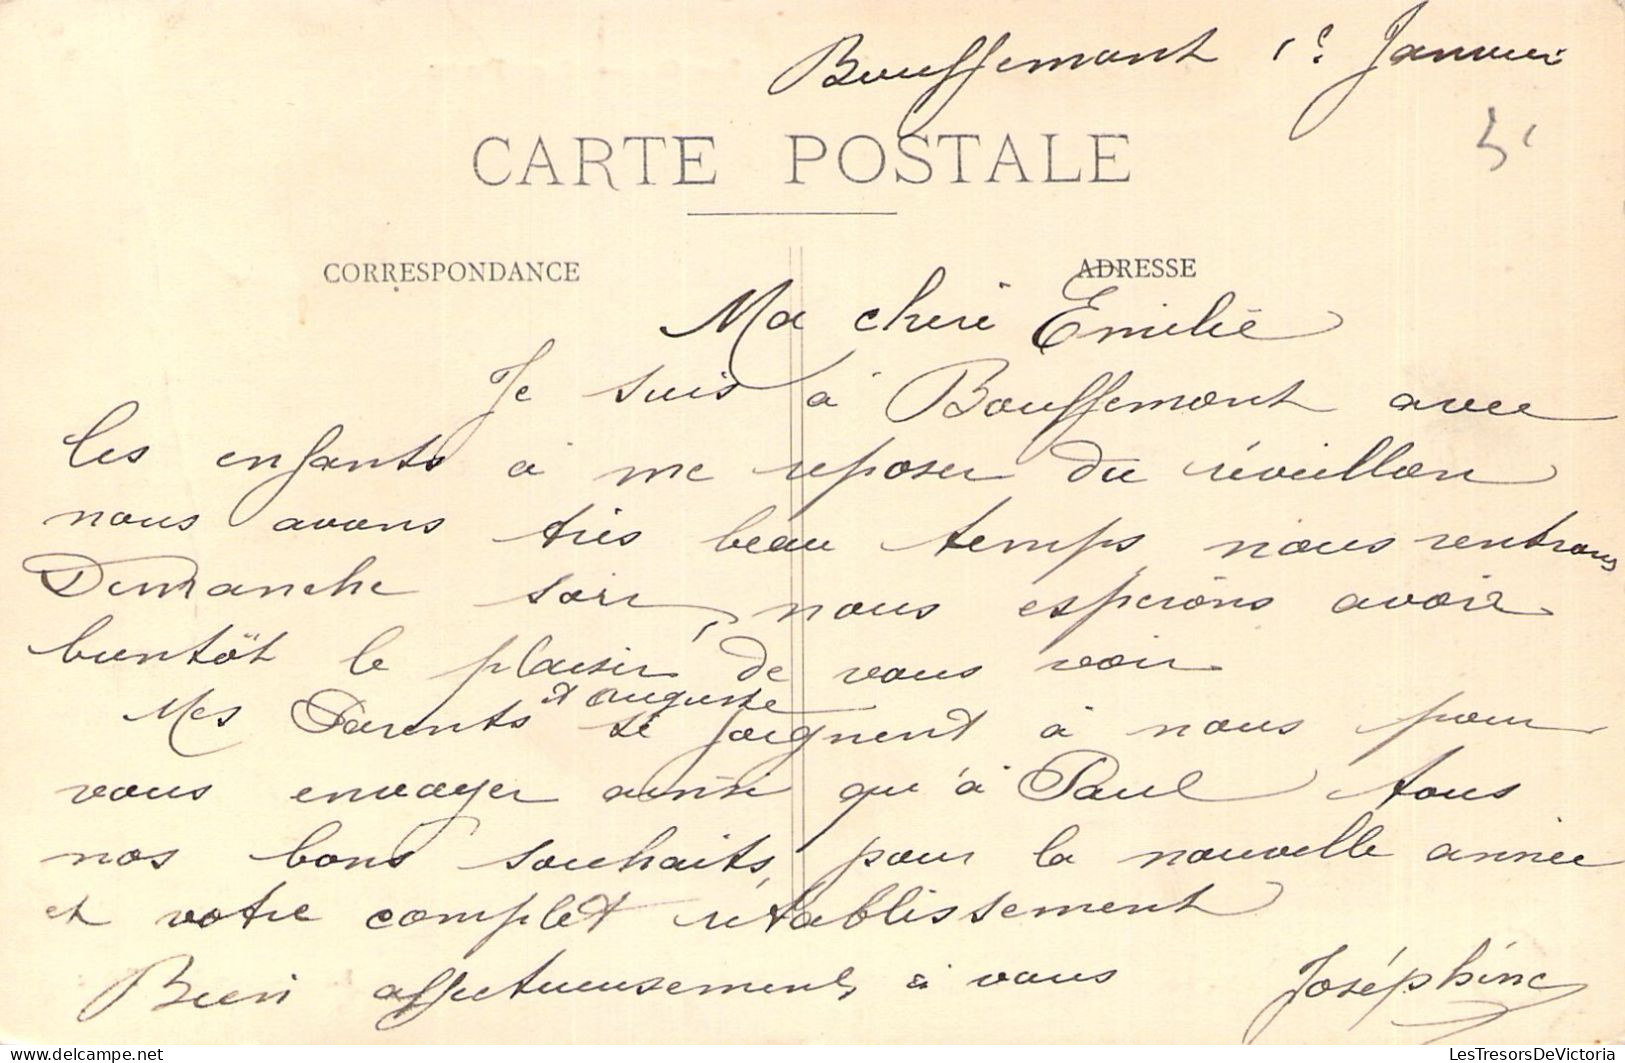 Bouffemont 1er Janvier
5c
CARTE POSTALE
CORRESPONDANCE
ADRESSE
Ma chère Emilie
Je suis à Bouffemont avec
les enfants à me reposer du réveillon
nous avons très beau temps, nous rentrons
Dimanche soir, nous esperons avoir
bientôt le plaisir de vous voir
Mes Parents et Auguste se joignent à nous pour
vous envoyer ainsi qu'à Paul tous
nos bons souhaits, pour la nouvelle année
et votre complet rétablissement
Bien affectueusement à vous Joséphine
LesTresorsDeVictoria
delcampe.net